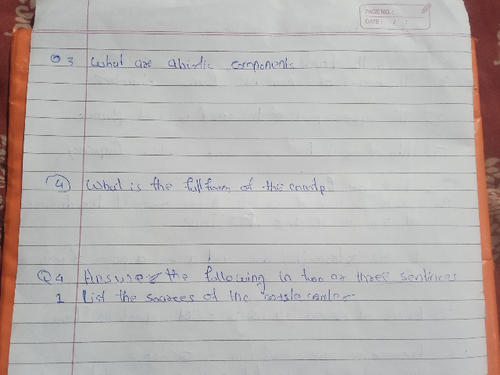 PAGE NO.:
DATE: / /
Q 3 What are abiotic components
(4) What is the full form of the
Q4 Answer the following in two or three sentinces
1 List the sources of the